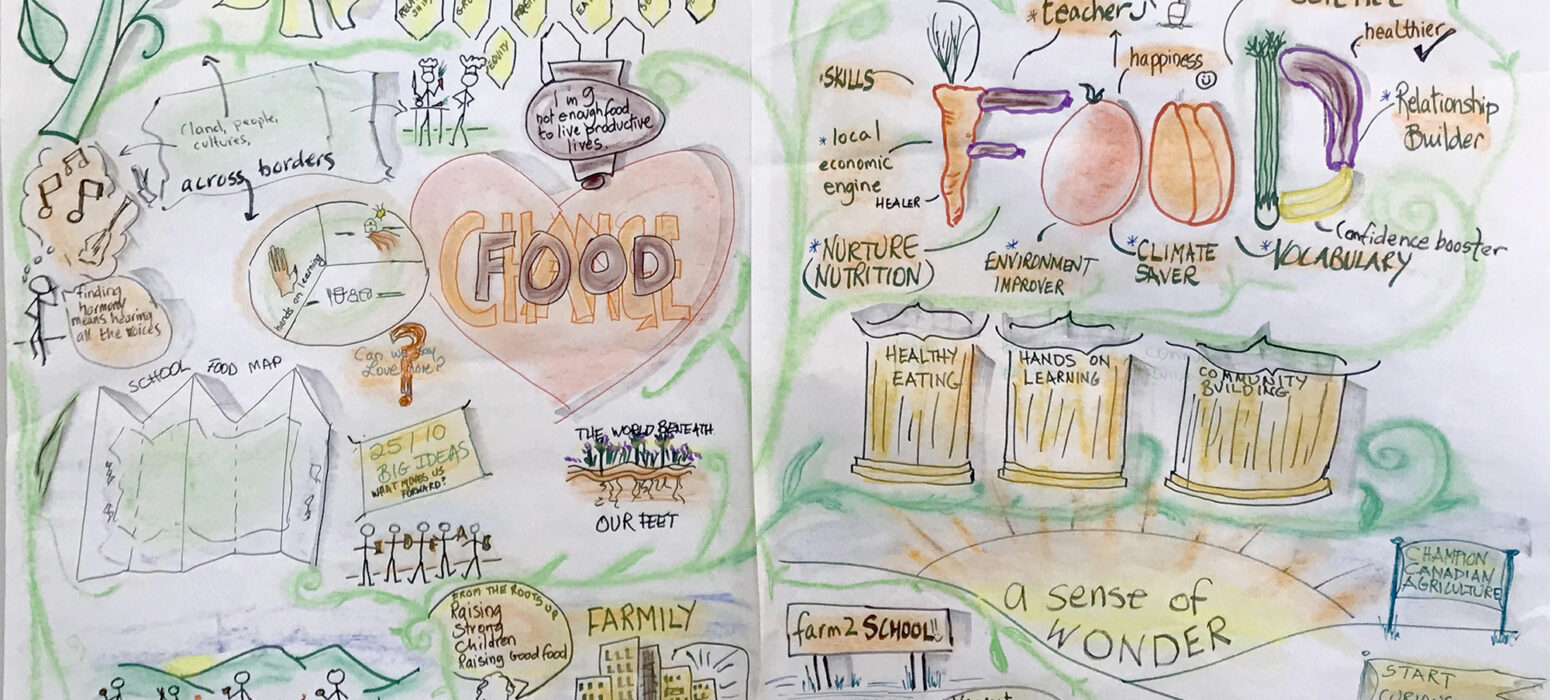 EQUITY
1 in 9
not enough food
to live productive
lives.
(land, people,
cultures,
across borders
hands on learning
CHANGE
FOOD
finding
harmony
means hearing
all the voices
Can we say
Love more?
SCHOOL FOOD MAP
25/10
BIG IDEAS
WHAT MOVES US
FORWARD?
IDEAS
THE WORLD BENEATH
OUR FEET
FROM THE ROOTS UP
Raising
Strong
Children
Raising Good food
FARMILY
*teacher
happiness
healthier
*SKILLS
FOOD
*Relationship
Builder
*local
economic
engine
HEALER
*NURTURE
(NUTRITION)
*ENVIRONMENT
IMPROVER
*CLIMATE
SAVER
*VOCABULARY
Confidence booster
HEALTHY
EATING
HANDS ON
LEARNING
COMMUNITY
BUILDING
a sense of
WONDER
CHAMPION
CANADIAN
AGRICULTURE
farm2SCHOOL!!
START